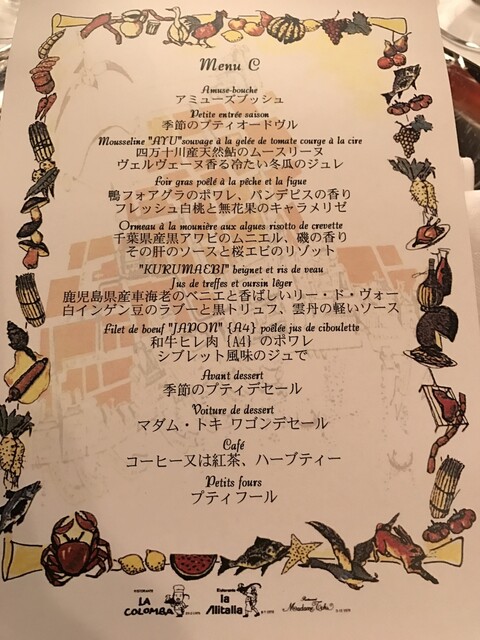 Menu C
Amuse-bouche
アミューズブッシュ
Petite entrée saison
季節のプティオードヴル
Mousseline "AYU" souvage à la gelée de tomate courge à la cire
四万十川産天然鮎のムースリーヌ
ヴェルヴェーヌ香る冷たい冬瓜のジュレ
Foir gras poêlé à la pêche et la figue
鴨フォアグラのポワレ、パンデピスの香り
フレッシュ白桃と無花果のキャラメリゼ
Ormeau à la mounière aux algues risotto de crevette
千葉県産黒アワビのムニエル、磯の香り
その肝のソースと桜エビのリゾット
"KURUMAEBI" beignet et ris de veau
Jus de treffes et oursin léger
鹿児島県産車海老のベニエと香ばしいリー・ド・ヴォー
白インゲン豆のラブーと黒トリュフ、雲丹の軽いソース
Filet de boeuf "JAPON" {A4} poêlée jus de ciboulette
和牛ヒレ肉 {A4} のポワレ
シブレット風味のジュで
Avant dessert
季節のプティデセール
Voiture de dessert
マダム・トキ ワゴンデセール
Café
コーヒー又は紅茶、ハーブティー
Petits fours
プティフール
RISTORANTE
LA COLOMBA
Ristorante
la Alitalia
Madame Toki